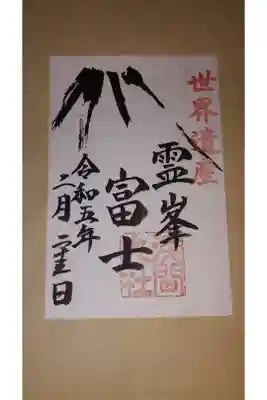 世界遺産
霊峯
富士
令和五年
二月二十三日